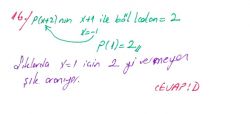 16./ P(x+2) nin x+1 ile böl. kalan = 2
x=-1
P(1)=2//
Şıklarda x=1 için 2 yi vermeyen
şık aranıyor.
CEVAP: D